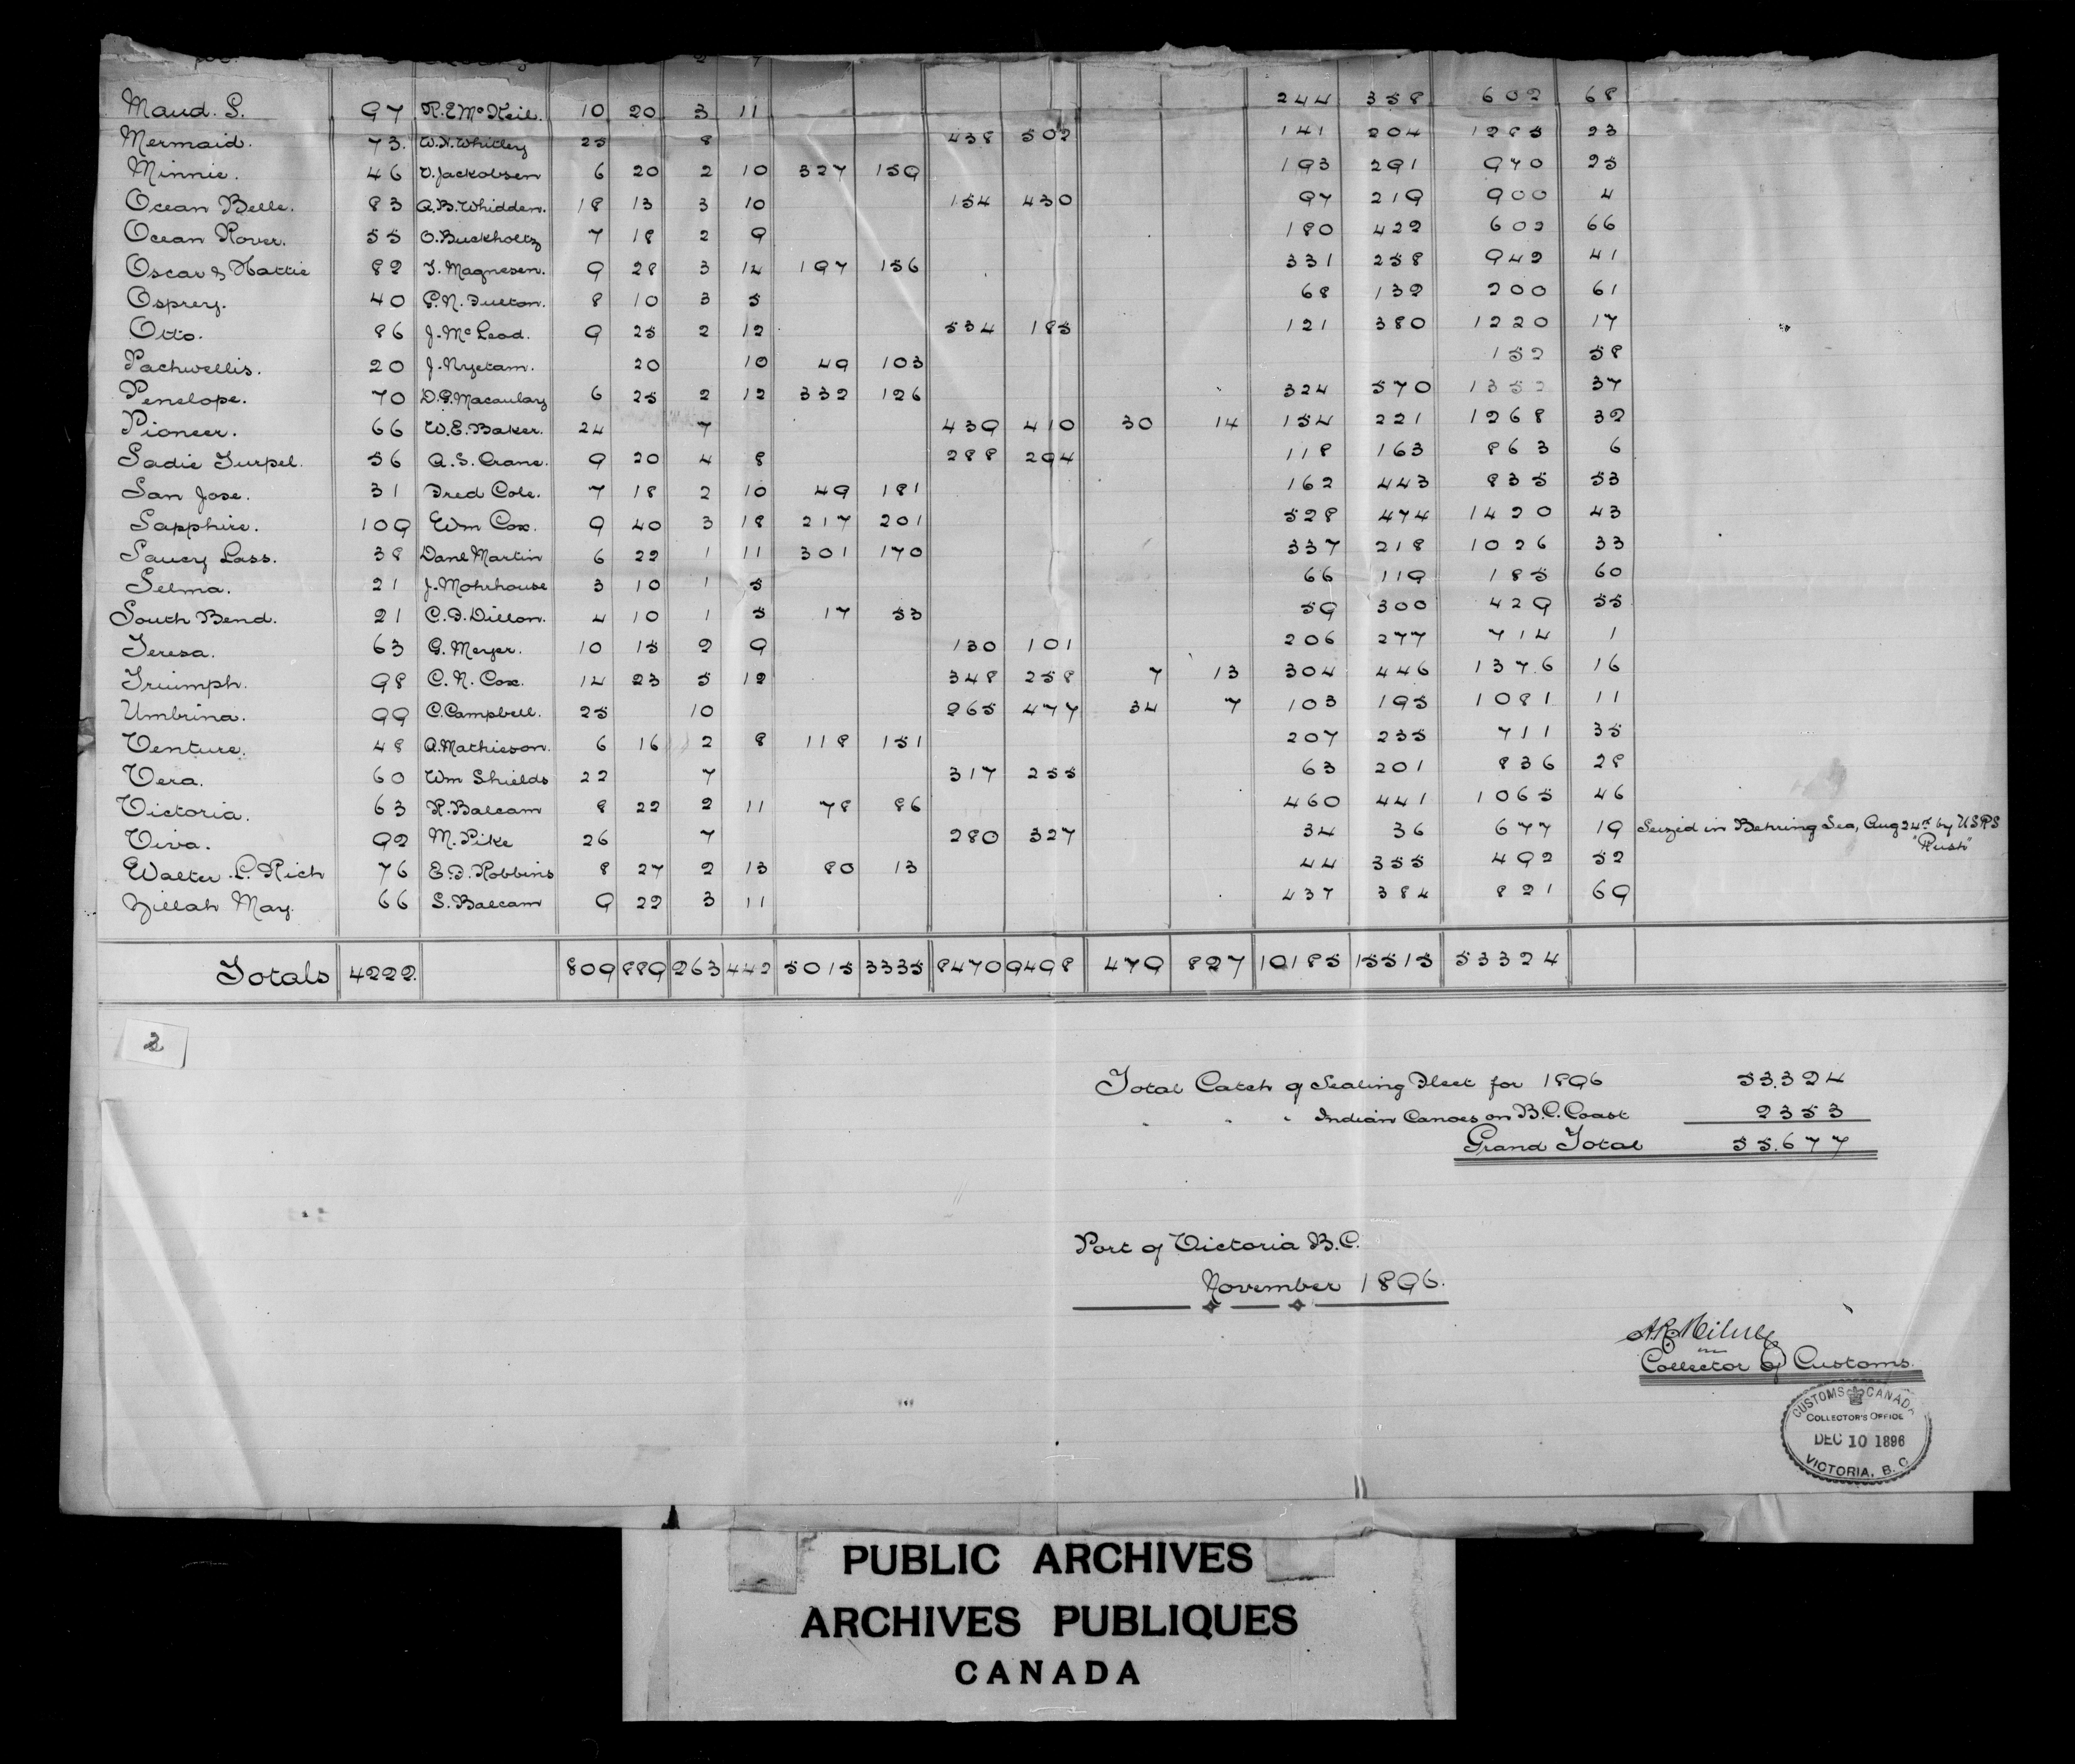 Maud. S. 97 R.E. McKeil. 10 20 3 11 244 358 602 68
Mermaid. 73. W.H. Whitley 25 8 438 502 141 204 1285 23
Minnie. 46 V. Jackobsen 6 20 2 10 327 159 193 291 970 25
Ocean Belle. 83 A.B. Whidden. 18 13 3 10 154 430 97 219 900 4
Ocean Rover. 55 O. Buckholtz 7 18 2 9 180 422 602 66
Oscar & Hattie 82 T. Magnesen. 9 28 3 14 197 156 331 258 942 41
Osprey. 40 P.N. Fulton. 8 10 3 5 68 132 200 61
Otto. 86 J. McLeod. 9 25 2 12 534 185 121 380 1220 17
Pachwellis. 20 J. Nyetam. 20 10 49 103 152 58
Penelope. 70 D.G. Macaulay 6 25 2 12 332 126 324 570 1352 37
Pioneer. 66 W.E. Baker. 24 7 439 410 30 14 154 221 1268 32
Sadie Turpel. 56 A.S. Crane. 9 20 4 8 288 294 118 163 863 6
San Jose. 31 Fred Cole. 7 18 2 10 49 181 162 443 835 53
Sapphire. 109 Wm Cox. 9 40 3 18 217 201 528 474 1420 43
Saucy Lass. 38 Danl Martin 6 22 1 11 301 170 337 218 1026 33
Selma. 21 J. Mohrhouse 3 10 1 5 66 119 185 60
South Bend. 21 C.F. Dillon. 4 10 1 5 17 53 59 300 429 55
Teresa. 63 G. Meyer. 10 15 2 9 130 101 206 277 714 1
Triumph. 98 C.N. Cox. 14 23 5 12 348 258 7 13 304 446 1376 16
Umbrina. 99 C. Campbell. 25 10 265 477 34 7 103 195 1081 11
Venture. 48 A. Mathieson. 6 16 2 8 118 151 207 235 711 35
Vera. 60 Wm Shields 22 7 317 255 63 201 836 28
Victoria. 63 R. Balcam 8 22 2 11 78 86 460 441 1065 46
Viva. 92 M. Pike 26 7 280 327 34 36 677 19 Seized in Behring Sea, Aug 24th by USRS
"Rush"
Walter L. Rich 76 E.F. Robbins 8 27 2 13 80 13 44 355 492 52
Zillah May. 66 S. Balcam 9 22 3 11 437 384 821 69
Totals 4222. 809 889 263 442 5015 3335 8470 9498 479 827 10185 15515 53324
2
Total Catch of Sealing Fleet for 1896 53.324
" " " Indian Canoes on B.C. Coast 2353
Grand Total 55.677
Port of Victoria B.C.
November 1896.
A.R. Milne
Collector of Customs.
CUSTOMS CANADA
COLLECTOR'S OFFICE
DEC 10 1896
VICTORIA, B. C
PUBLIC ARCHIVES
ARCHIVES PUBLIQUES
CANADA